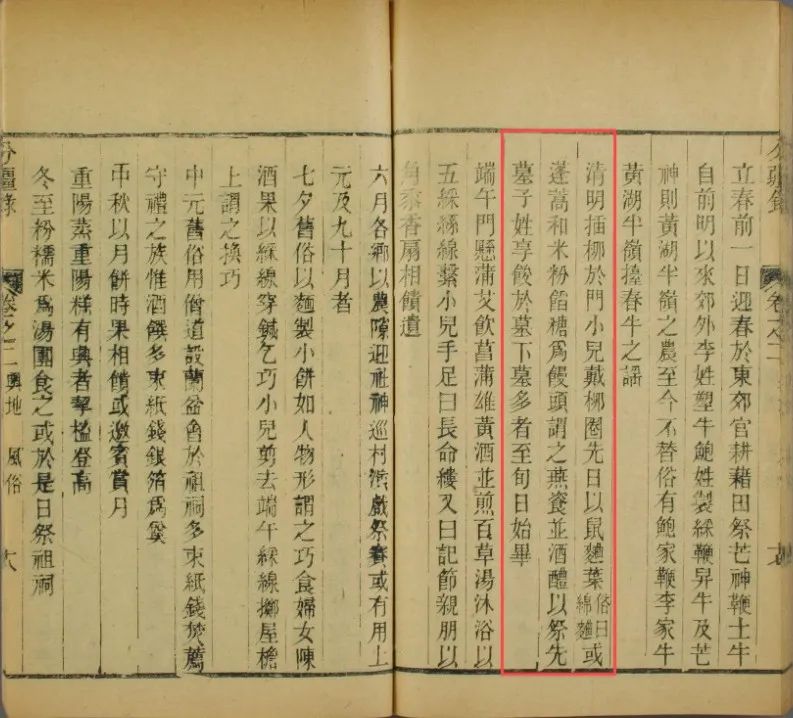 分疆錄 卷之二
立春前一日迎春於東郊官耕藉田祭芒神鞭土牛
自前明以來郊外李姓塑牛鮑姓製綵鞭舁牛及芒
神則黃湖半嶺之農至今不替俗有鮑家鞭李家牛
黃湖半嶺擡春牛之謠
清明插柳於門小兒戴柳圈先日以鼠麯葉俗曰綿麯或
蓬蒿和米粉餡糖爲饅頭謂之燕餈並酒醴以祭先
墓子姓享餕於墓下墓多者至旬日始畢
端午門懸蒲艾飲菖蒲雄黃酒並煎百草湯沐浴以
五綵絲線繫小兒手足曰長命縷又曰記節親朋以
角黍香扇相饋遺
六月各鄉以農隙迎社神巡村演戲祭賽或有用上
元及九十月者
七夕舊俗以麵製小餅如人物形謂之巧食婦女陳
酒果以綵線穿鍼乞巧小兒剪去端午綵線擲屋檐
上謂之換巧
中元舊俗用僧道設蘭盆會於祖祠多束紙錢焚薦
守禮之族惟酒饌多束紙錢銀箔爲奠
中秋以月餅時果相饋或邀賓賞月
重陽蒸重陽糕有興者挈榼登高
冬至粉糯米爲湯團食之或於是日祭祖祠
分疆錄 卷之二 輿地 風俗